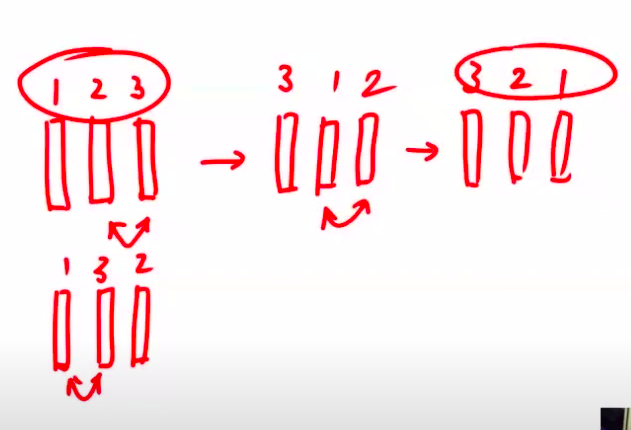 1 2 3 → 3 1 2 → 3 2 1
1 3 2